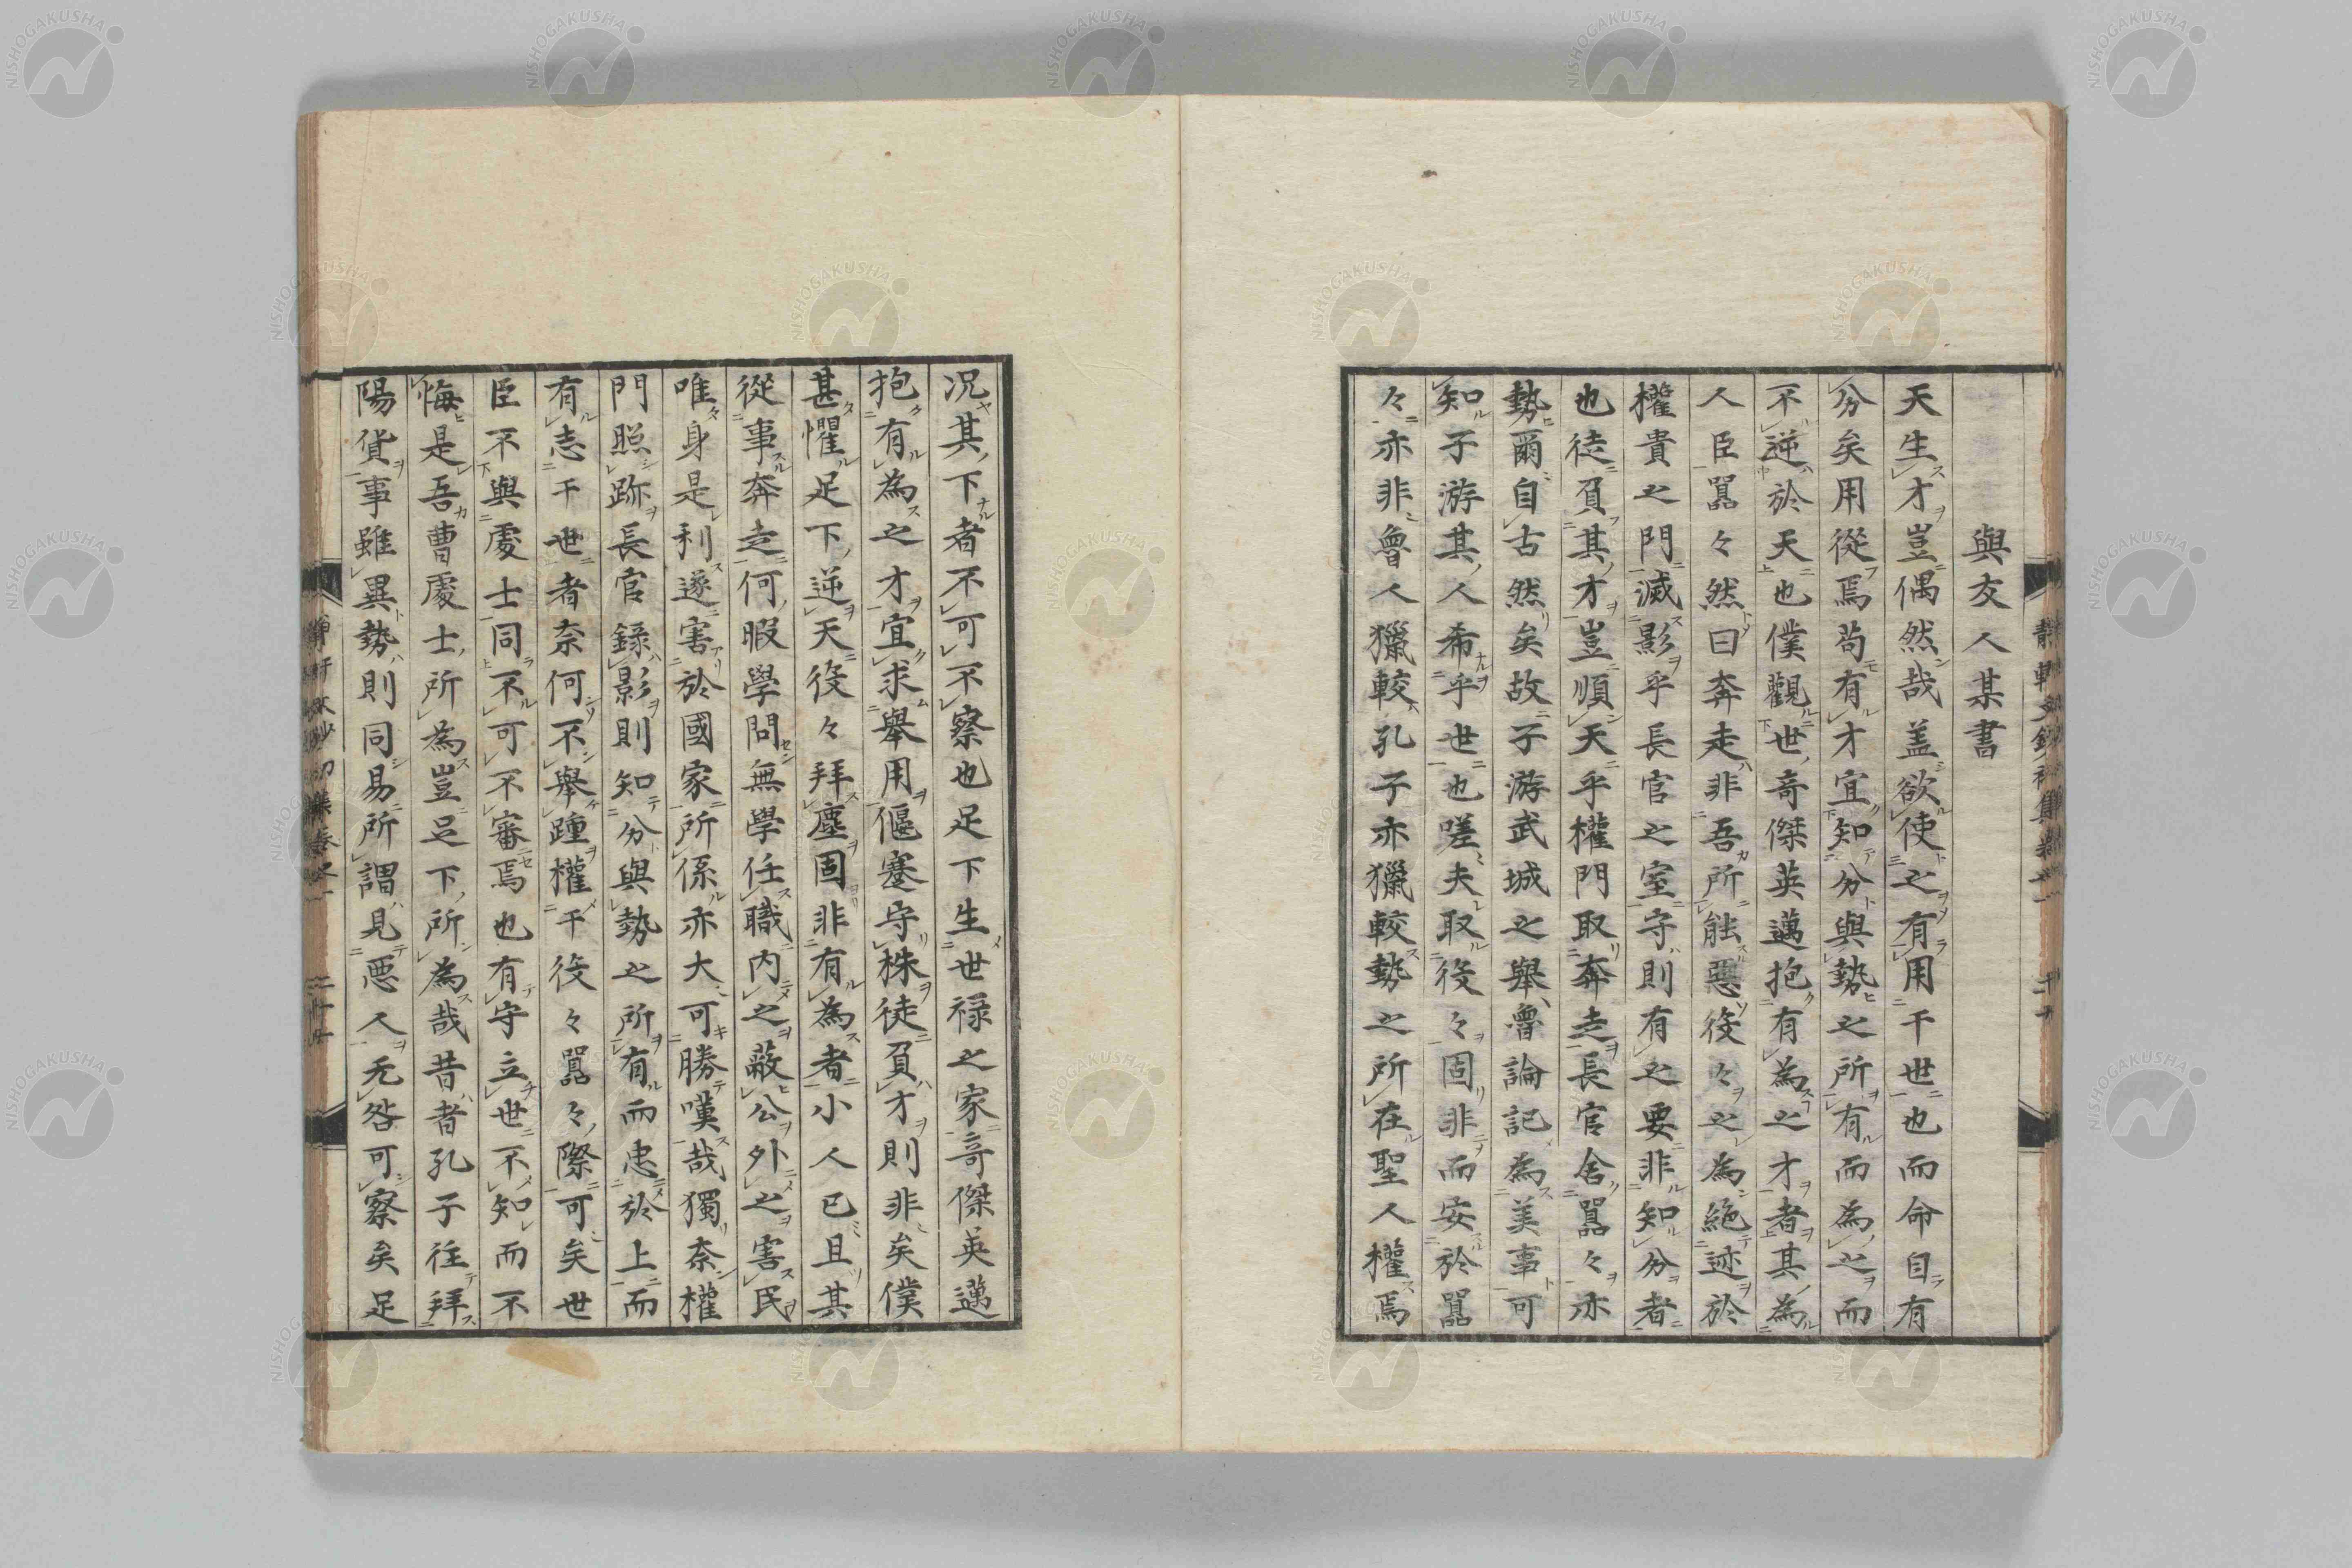 與友人某書
天生才豈偶然哉盖欲使之有用干世也而命自有
分矣用從焉苟有才宜知分與勢之所有而為之而
不逆於天也僕觀世奇傑英邁抱有為之才者其為
人臣囂々然曰奔走非吾所能惡役々之為絶迹於
權貴之門滅影乎長官之室守則有之要非知分者
也徒負其才豈順天乎權門取奔走長官舍囂々亦
勢爾自古然矣故子游武城之舉魯論記為美事可
知子游其人希乎世也嗟夫取役々固非而安於囂
々亦非魯人獵較孔子亦獵較勢之所在聖人權焉
况其下者不可不察也足下生世禄之家奇傑英邁
抱有為之才宜求舉用偃蹇守株徒負才則非矣僕
甚懼足下逆天役々拜塵固非有為者小人已且其
從事奔走何暇學問無學任職内之蔽公外之害民
唯身是利遂害於國家所係亦大可勝嘆哉獨奈權
門照跡長官録影則知分與勢之所有而忠於上而
有志干世者奈何不舉踵權干役々囂々際可矣世
臣不與處士同不可不審焉也有守立世不知而不
悔是吾曹處士所為豈足下所為哉昔者孔子往拜
陽貨事雖異勢則同易所謂見悪人无咎可察矣足
NISHOGAKUSHA